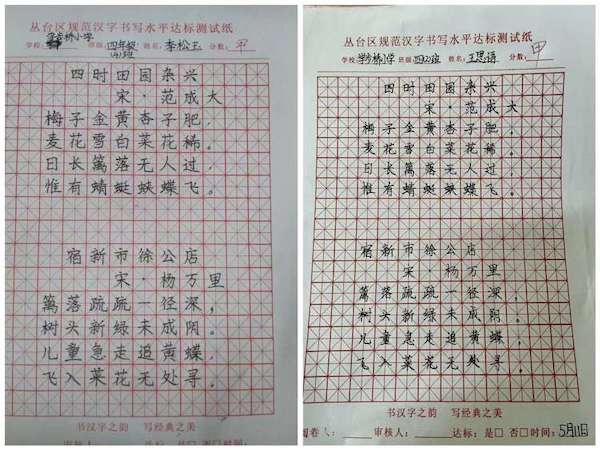 丛台区规范汉字书写水平达标测试纸
学校: 桥小学 班级: 四年级(4)班 姓名: 李松玉 分数: 甲
四时田园杂兴
宋·范成大
梅子金黄杏子肥,
麦花雪白菜花稀。
日长篱落无人过,
惟有蜻蜓蛱蝶飞。
宿新市徐公店
宋·杨万里
篱落疏疏一径深,
树头新绿未成阴。
儿童急走追黄蝶,
飞入菜花无处寻。
书汉字之韵 写经典之美
审核人: 达标: 是□ 否□ 时间:
丛台区规范汉字书写水平达标测试纸
学校: 桥小学 班级: 姓名: 王思语 分数: 甲
四时田园杂兴
宋·范成大
梅子金黄杏子肥,
麦花雪白菜花稀。
日长篱落无人过,
惟有蜻蜓蛱蝶飞。
宿新市徐公店
宋·杨万里
篱落疏疏一径深,
树头新绿未成阴。
儿童急走追黄蝶,
飞入菜花无处寻。
书汉字之韵 写经典之美
阅卷人: 审核人: 达标: 是□ 否□ 时间: 5月11日